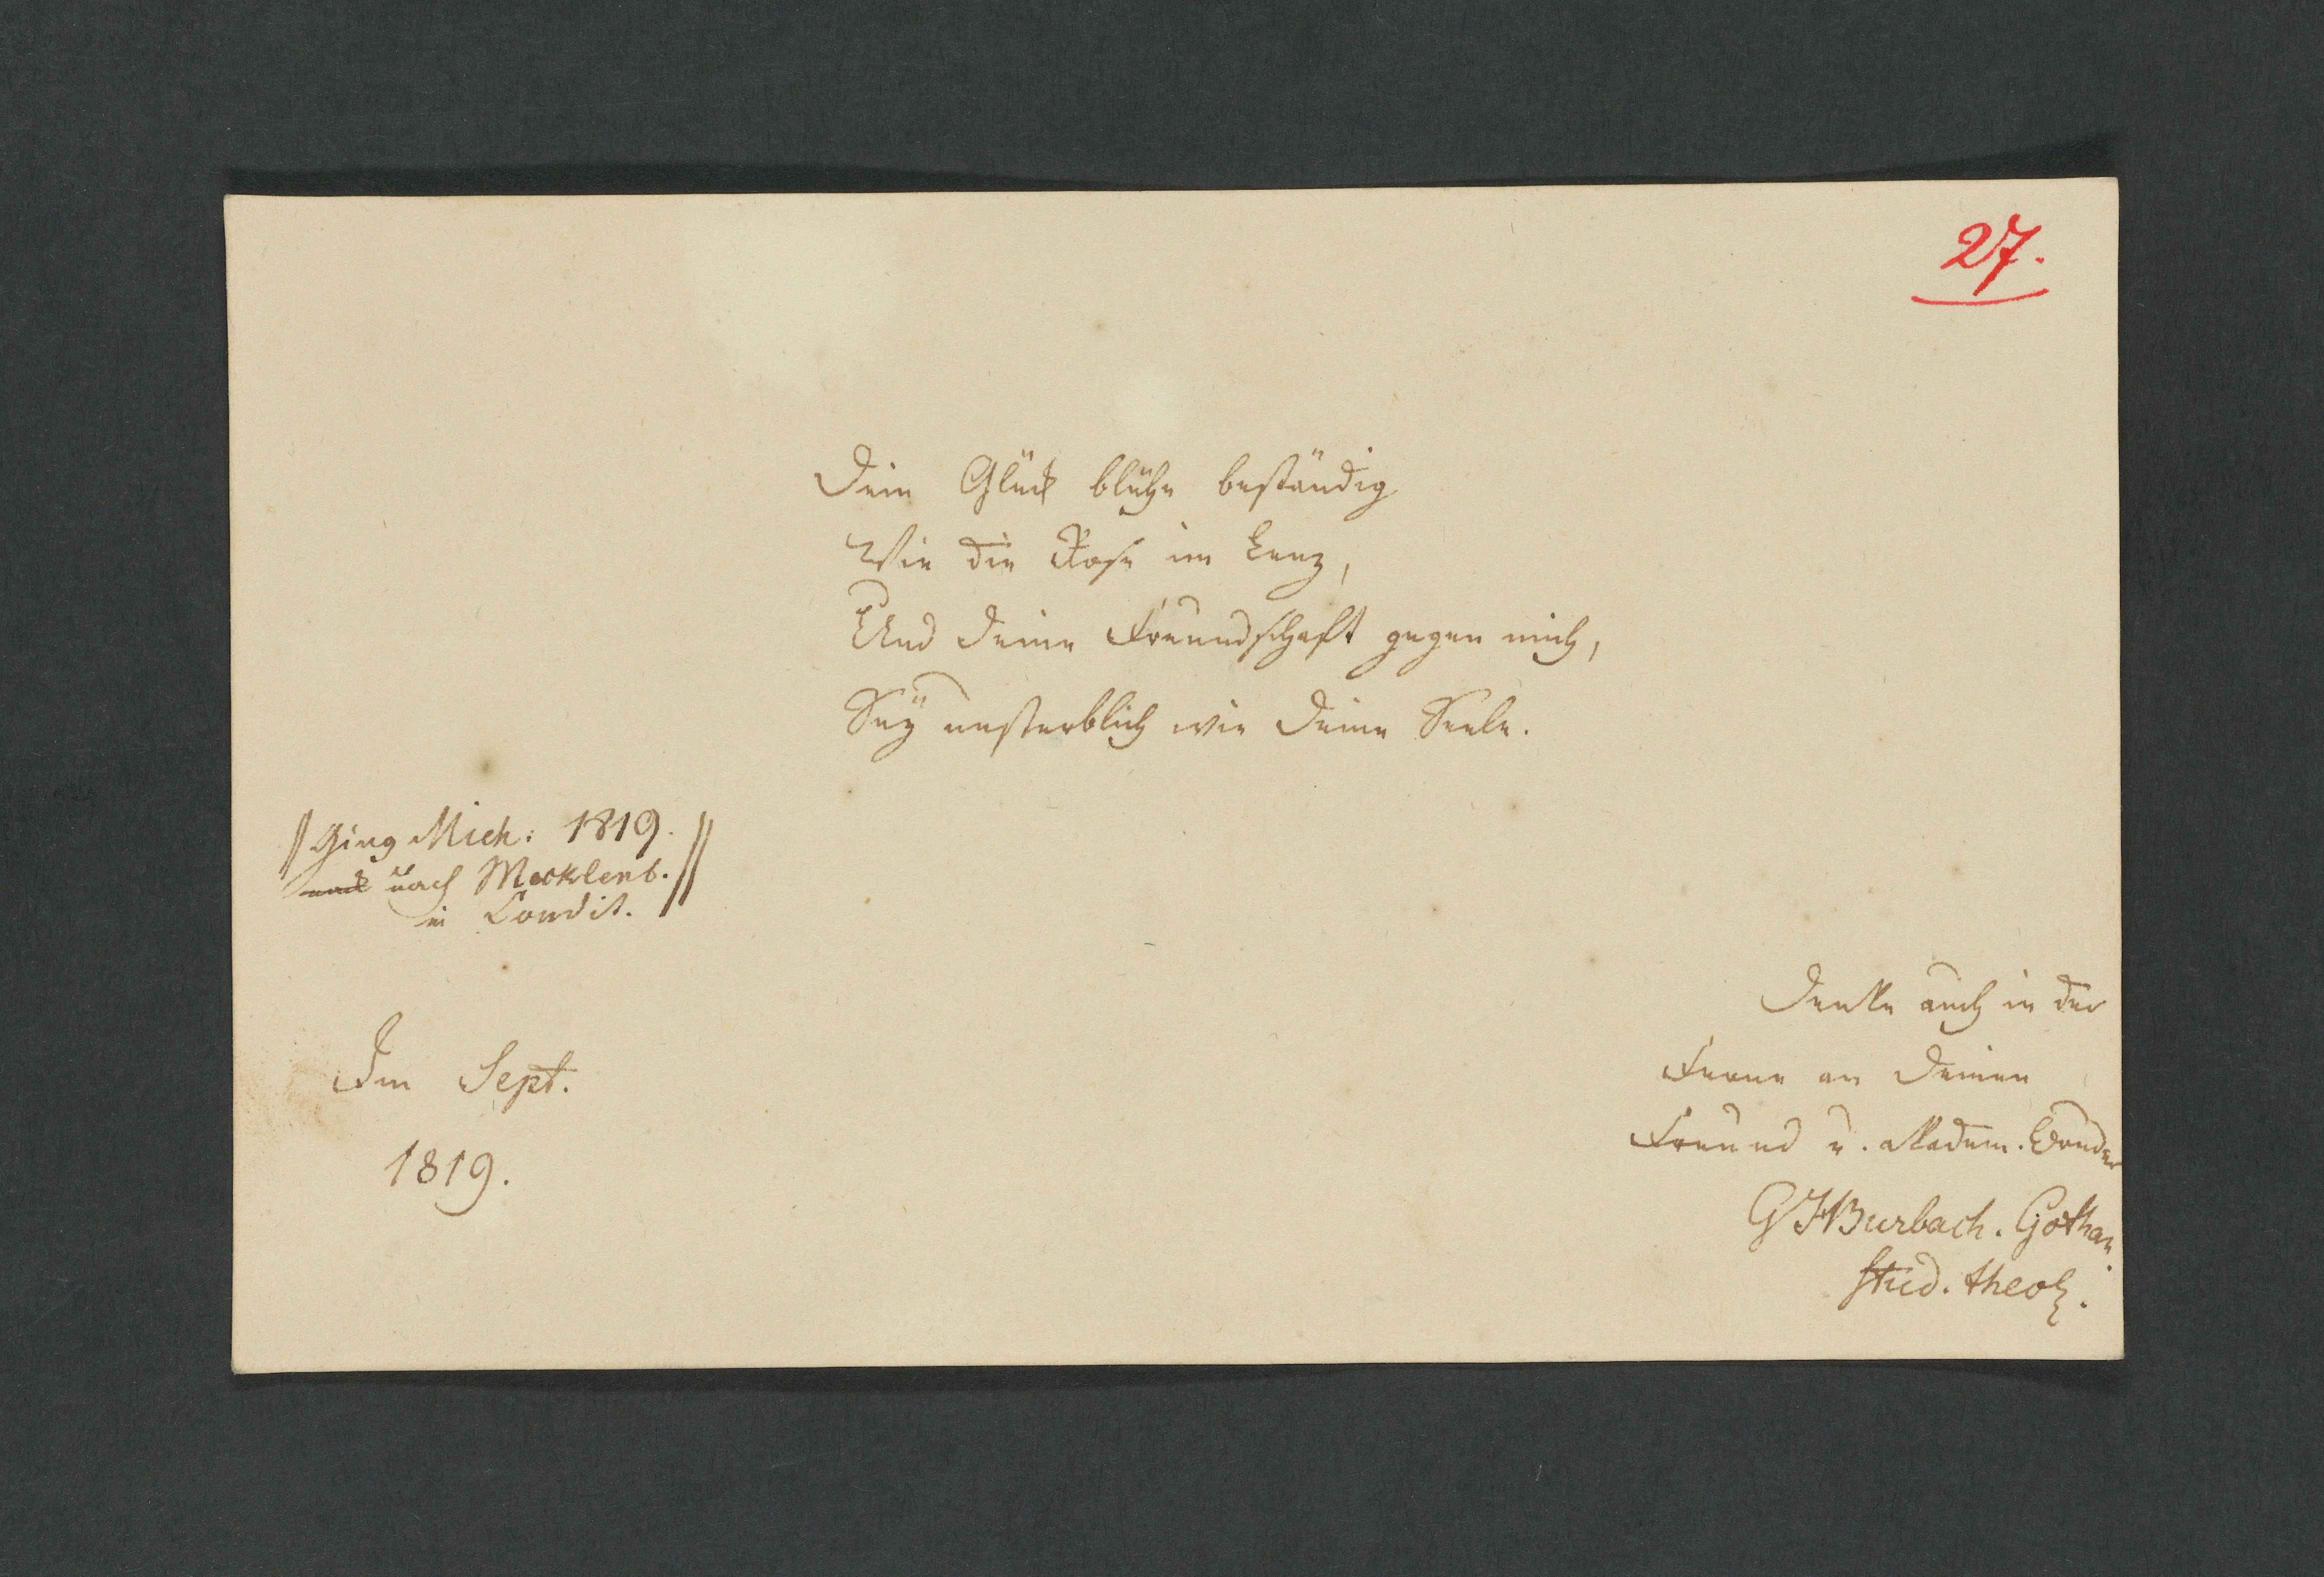 27.
Dein Glück blühe beständig
Wie die Rose im Lenz,
Und deine Freundschaft gegen mich,
Seÿ unsterblich wie deine Seele.
// Ging Mich: 1819. //
nach Mecklenb.
in Condit.
Denke auch in der
Ferne an deinen
Freund u. akadem. Bruder
Im Sept.
1819.
GFBurbach. Gothan.
stud. theol.